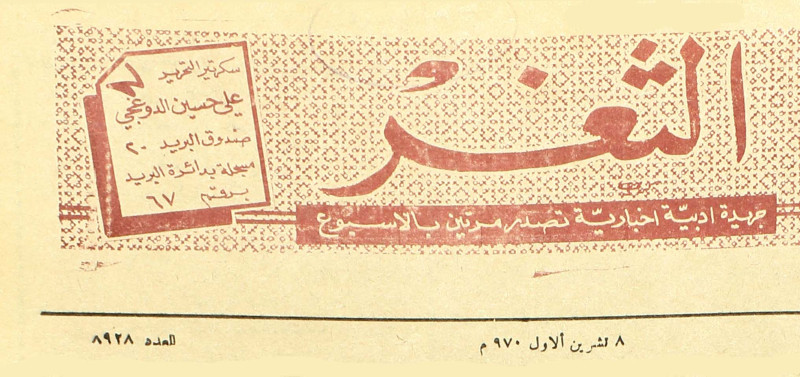 الثغر
جريدة ادبيّة اخباريّة تصدر مرتين بالاسبوع
سكرتير التحرير
علي حسين الدوغجي
صندوق البريد ٢٠
مسجلة بدائرة البريد
برقم ٦٧
٨ تشرين ألاول ٩٧٠ م
العدد ٨٩٢٨